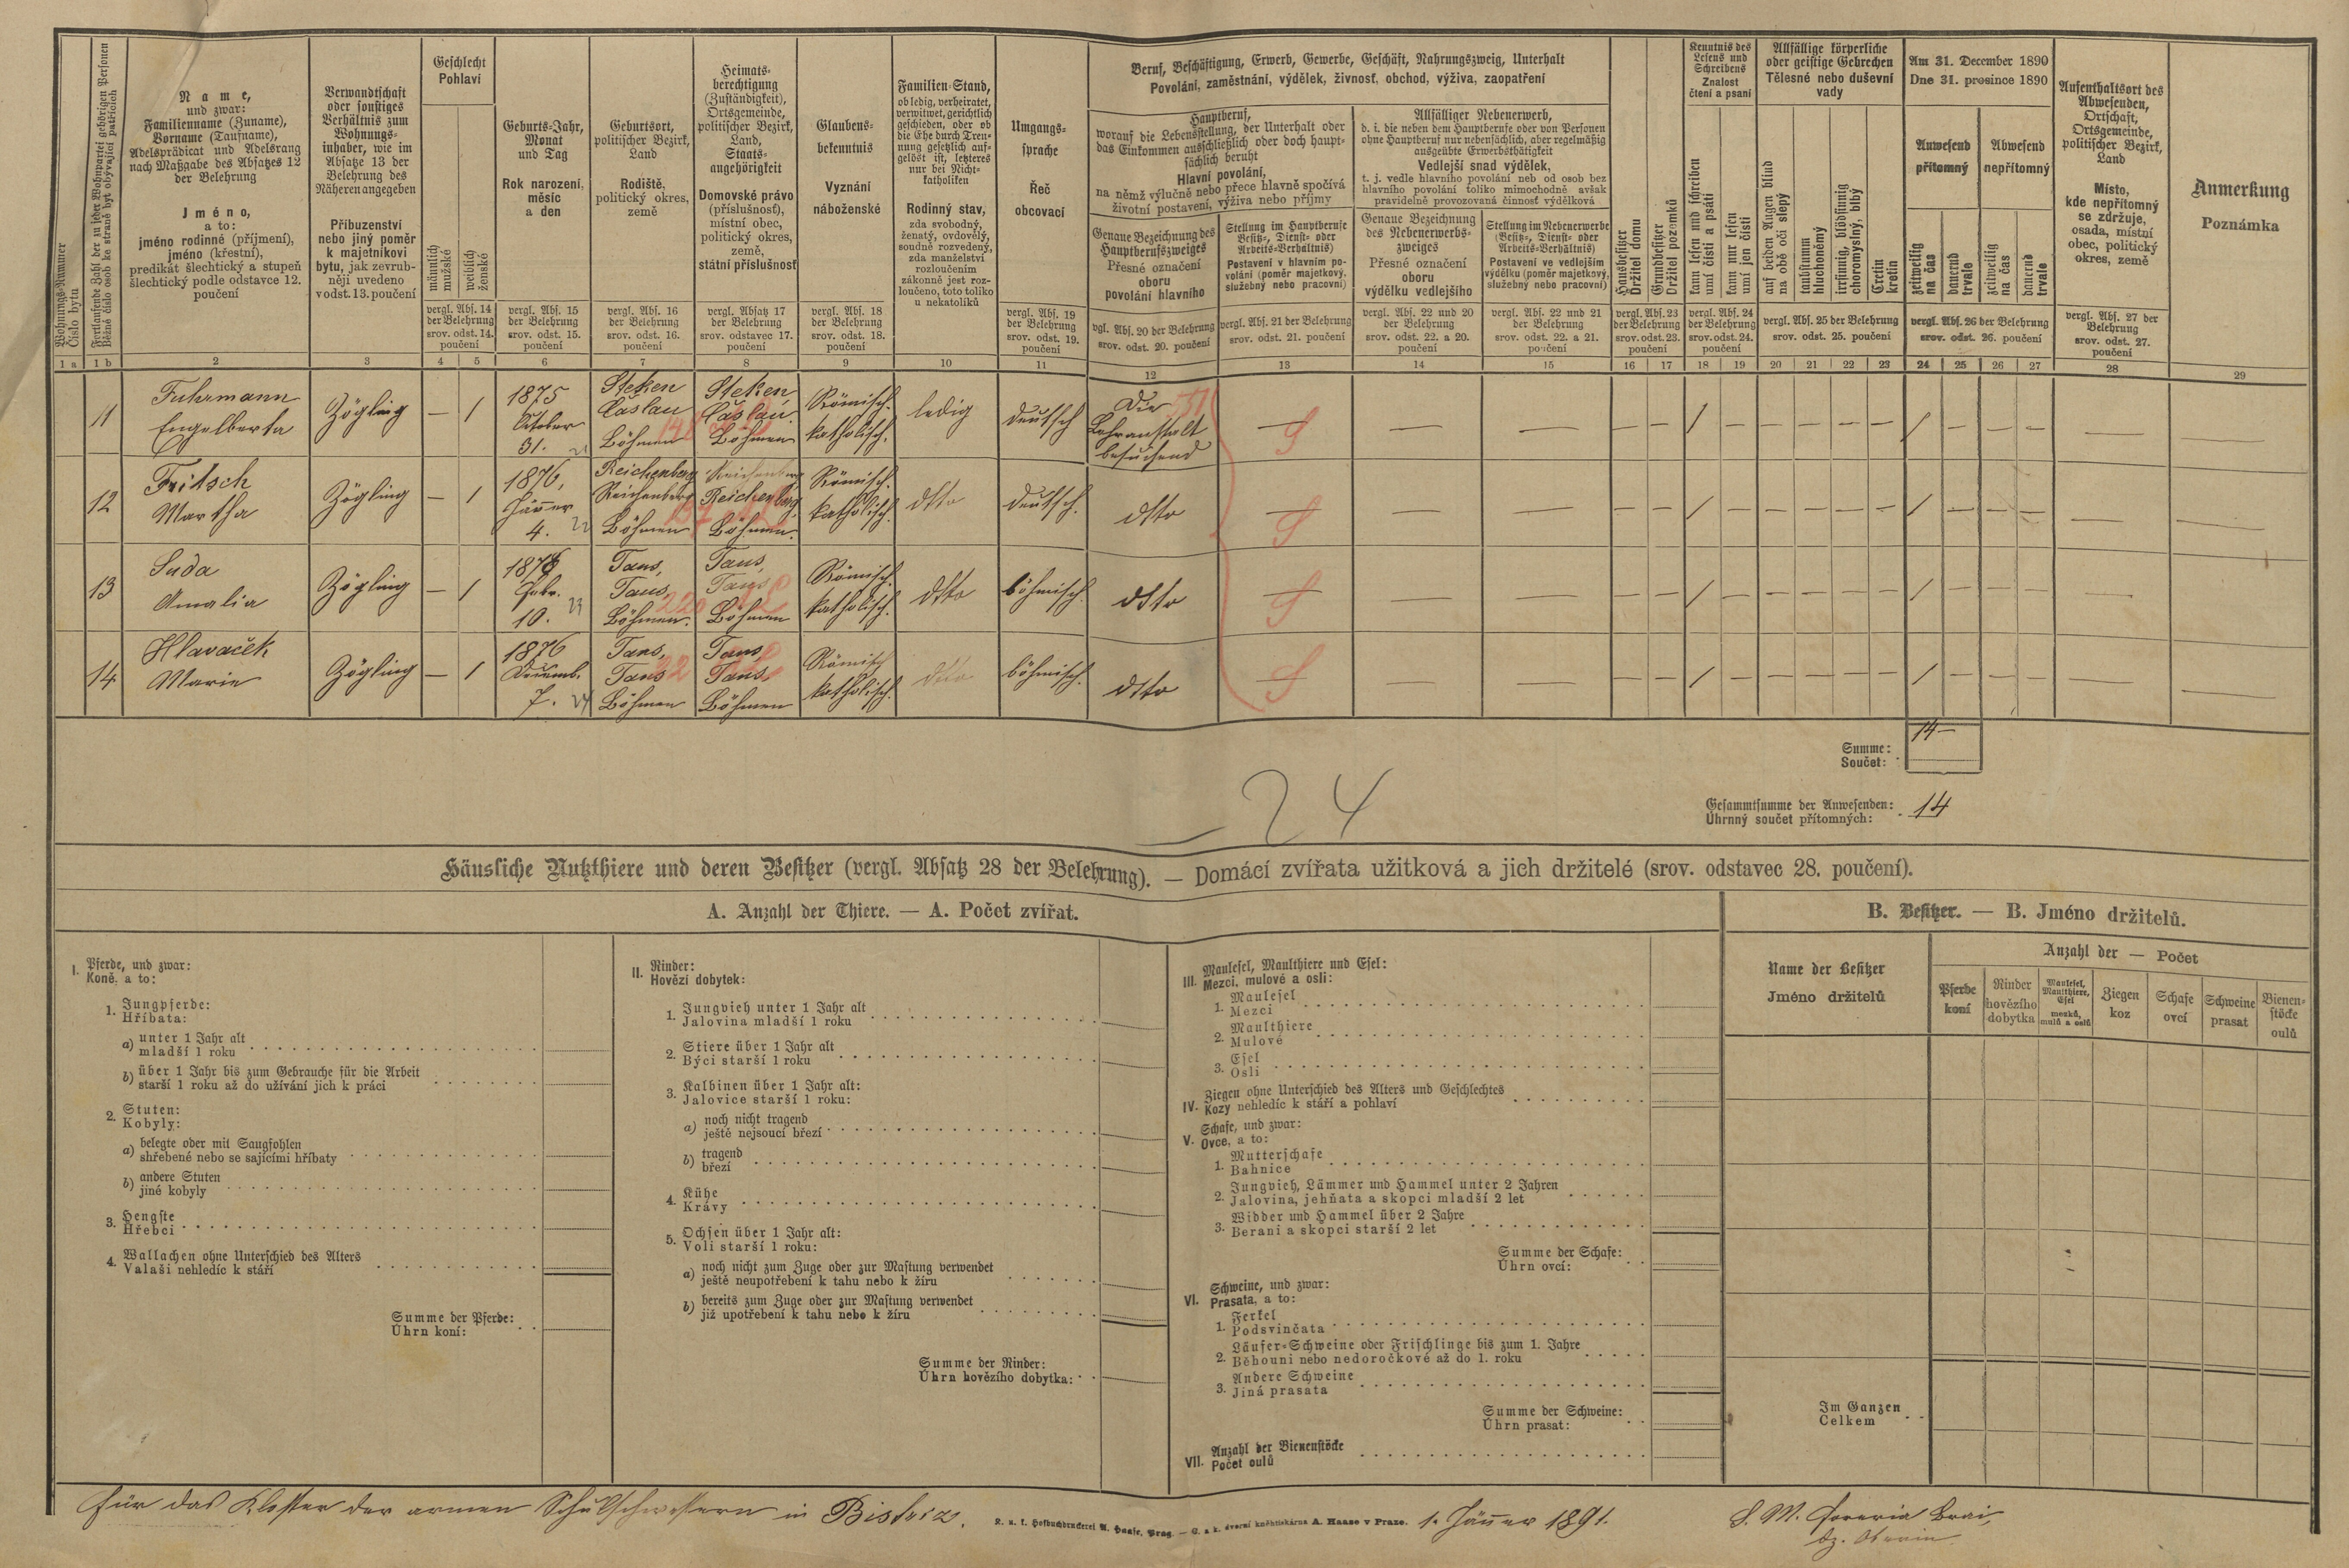 Wohnungs-Nummer
Číslo bytu
Fortlaufende Zahl der zu jeder Wohnpartei gehörigen Personen
Běžné číslo osob ke straně byt obývající patřících
Name,
und zwar:
Familienname (Zuname),
Vorname (Taufname),
Adelsprädicat und Adelsrang
nach Maßgabe des Absatzes 12
der Belehrung
Jméno,
a to:
jméno rodinné (příjmení),
jméno (křestní),
predikát šlechtický a stupeň
šlechtický podle odstavce 12.
poučení
Verwandtschaft
oder sonstiges
Verhältnis zum
Wohnungs-
inhaber, wie im
Absatze 13 der
Belehrung des
Näheren angegeben
Příbuzenství
nebo jiný poměr
k majetníkovi
bytu, jak zevrub-
něji uvedeno
v odst. 13. poučení
Geschlecht
Pohlaví
männlich
mužské
weiblich
ženské
vergl. Abs. 14
der Belehrung
srov. odst. 14.
poučení
Geburts-Jahr,
Monat
und Tag
Rok narození,
měsíc
a den
vergl. Abs. 15
der Belehrung
srov. odst. 15.
poučení
Geburtsort,
politischer Bezirk,
Land
Rodiště,
politický okres,
země
vergl. Abs. 16
der Belehrung
srov. odst. 16.
poučení
Heimats-
berechtigung
(Zuständigkeit),
Ortsgemeinde,
politischer Bezirk,
Land,
Staats-
angehörigkeit
Domovské právo
(příslušnosť),
místní obec,
politický okres,
země,
státní příslušnosť
vergl. Absatz 17
der Belehrung
srov. odstavec 17.
poučení
Glaubens-
bekenntnis
Vyznání
náboženské
vergl. Abs. 18
der Belehrung
srov. odst. 18.
poučení
Familien-Stand,
ob ledig, verheiratet,
verwitwet, gerichtlich
geschieden, oder ob
die Ehe durch Tren-
nung gesetzlich auf-
gelöst ist, letzteres
nur bei Nicht-
katholiken
Rodinný stav,
zda svobodný,
ženatý, ovdovělý,
soudně rozvedený,
zda manželství
rozloučením
zákonně jest roz-
loučeno, toto toliko
u nekatolíků
Umgangs-
sprache
Řeč
obcovací
vergl. Abs. 19
der Belehrung
srov. odst. 19.
poučení
Beruf, Beschäftigung, Erwerb, Gewerbe, Geschäft, Nahrungszweig, Unterhalt
Povolání, zaměstnání, výdělek, živnosť, obchod, výživa, zaopatření
Hauptberuf,
worauf die Lebensstellung, der Unterhalt oder
das Einkommen ausschließlich oder doch haupt-
sächlich beruht
Hlavní povolání,
na němž výlučně nebo přece hlavně spočívá
životní postavení, výživa nebo příjmy
Genaue Bezeichnung des
Hauptberufszweiges
Přesné označení
oboru
povolání hlavního
vgl. Abs. 20 der Belehrung
srov. odst. 20. poučení
Stellung im Hauptberufe
Besitz-, Dienst- oder
Arbeits-Verhältnis)
Postavení v hlavním po-
volání (poměr majetkový,
služebný nebo pracovní)
vergl. Abs. 21 der Belehrung
srov. odst. 21. poučení
Allfälliger Nebenerwerb,
d. i. die neben dem Hauptberufe oder von Personen
ohne Hauptberuf nur nebensächlich, aber regelmäßig
ausgeübte Erwerbsthätigkeit
Vedlejší snad výdělek,
t. j. vedle hlavního povolání neb od osob bez
hlavního povolání toliko mimochodně avšak
pravidelně provozovaná činnosť výdělková
Genaue Bezeichnung
des Nebenerwerbs-
zweiges
Přesné označení
oboru
výdělku vedlejšího
vergl. Abs. 22 und 20
der Belehrung
srov. odst. 22. a 20.
poučení
Stellung im Nebenerwerbe
(Besitz-, Dienst- oder
Arbeits-Verhältnis)
Postavení ve vedlejším
výdělku (poměr majetkový,
služebný nebo pracovní)
vergl. Abs. 22 und 21
der Belehrung
srov. odst. 22. a 21.
poučení
Hausbesitzer
Držitel domu
Grundbesitzer
Držitel pozemků
vergl. Abs. 23
der Belehrung
srov. odst. 23.
poučení
Kenntnis des
Lesens und
Schreibens
Znalost
čtení a psaní
kann lesen und schreiben
umí čísti a psáti
kann nur lesen
umí jen čísti
vergl. Abs. 24
der Belehrung
srov. odst. 24.
poučení
Allfällige körperliche
oder geistige Gebrechen
Tělesné nebo duševní
vady
auf beiden Augen blind
na obě oči slepý
taubstumm
hluchoněmý
irrsinnig, blödsinnig
choromyslný, blbý
Cretin
kretin
vergl. Abs. 25 der Belehrung
srov. odst. 25. poučení
Am 31. December 1890
Dne 31. prosince 1890
Anwesend
přítomný
Abwesend
nepřítomný
zeitweilig
na čas
dauernd
trvale
zeitweilig
na čas
dauernd
trvale
vergl. Abs. 26 der Belehrung
srov. odst. 26. poučení
Aufenthaltsort des
Abwesenden,
Ortschaft,
Ortsgemeinde,
politischer Bezirk,
Land
Místo,
kde nepřítomný
se zdržuje,
osada, místní
obec, politický
okres, země
vergl. Abs. 27 der
Belehrung
srov. odst. 27.
poučení
Anmerkung
Poznámka
1 a 1 b 2 3 4 5 6 7 8 9 10 11 12 13 14 15 16 17 18 19 20 21 22 23 24 25 26 27 28 29
11 Fuhrmann Engelberta Zögling — 1 1875 October 31. Steken Čáslau Böhmen Steken Čáslau Böhmen Römisch-katholisch. ledig deutsch Die Lehranstalt besuchend — S — — — — / — — — — — / — — — — —
12 Fritsch Martha Zögling — 1 1876, Jänner 4. 22 Reichenberg Reichenberg Böhmen Reichenberg Reichenberg, Böhmen. Römisch-katholisch. dtto deutsch. dtto — S — — — — / — — — — — / — — — — —
13 Suda Amalia Zögling — 1 1876 Febr. 10. 23 Taus, Taus, Böhmen. Taus, Taus Böhmen Römisch-katholisch. dtto böhmisch. dtto — S — — — — / — — — — — / — — — — —
14 Hlavaček Marie Zögling — 1 1876 Decemb. 7. 24 Taus, Taus Böhmen Taus Taus Böhmen Römisch katholisch. dtto böhmisch. dtto — S — — — — / — — — — — / — — — — —
Summe: 14 —
Součet:
24
Gesammtsumme der Anwesenden: 14
Úhrnný součet přítomných:
Häusliche Nutzthiere und deren Besitzer (vergl. Absatz 28 der Belehrung). — Domácí zvířata užitková a jich držitelé (srov. odstavec 28. poučení).
A. Anzahl der Thiere. — A. Počet zvířat.
I. Pferde, und zwar:
Koně, a to:
1. Jungpferde:
Hříbata:
a) unter 1 Jahr alt
mladší 1 roku
b) über 1 Jahr bis zum Gebrauche für die Arbeit
starší 1 roku až do užívání jich k práci
2. Stuten:
Kobyly:
a) belegte oder mit Saugfohlen
shřebené nebo se sajícími hříbaty
b) andere Stuten
jiné kobyly
3. Hengste
Hřebci
4. Wallachen ohne Unterschied des Alters
Valaši nehledíc k stáří
Summe der Pferde:
Úhrn koní:
II. Rinder:
Hovězí dobytek:
1. Jungvieh unter 1 Jahr alt
Jalovina mladší 1 roku
2. Stiere über 1 Jahr alt
Býci starší 1 roku
3. Kalbinen über 1 Jahr alt:
Jalovice starší 1 roku:
a) noch nicht tragend
ještě nejsoucí březí
b) tragend
březí
4. Kühe
Krávy
5. Ochsen über 1 Jahr alt:
Voli starší 1 roku:
a) noch nicht zum Zuge oder zur Mastung verwendet
ještě neupotřebení k tahu nebo k žíru
b) bereits zum Zuge oder zur Mastung verwendet
již upotřebení k tahu nebo k žíru
Summe der Rinder:
Úhrn hovězího dobytka:
III. Maulesel, Maulthiere und Esel:
Mezci, mulové a osli:
1. Maulesel
Mezci
2. Maulthiere
Mulové
3. Esel
Osli
IV. Ziegen ohne Unterschied des Alters und Geschlechtes
Kozy nehledíc k stáří a pohlaví
V. Schafe, und zwar:
Ovce, a to:
1. Mutterschafe
Bahnice
2. Jungvieh, Lämmer und Hammel unter 2 Jahren
Jalovina, jehňata a skopci mladší 2 let
3. Widder und Hammel über 2 Jahre
Berani a skopci starší 2 let
Summe der Schafe:
Úhrn ovcí:
VI. Schweine, und zwar:
Prasata, a to:
1. Ferkel
Podsvinčata
2. Läufer-Schweine oder Frischlinge bis zum 1. Jahre
Běhouni nebo nedoročkové až do 1. roku
3. Andere Schweine
Jiná prasata
Summe der Schweine:
Úhrn prasat:
VII. Anzahl der Bienenstöcke
Počet oulů
B. Besitzer. — B. Jméno držitelů.
Name der Besitzer
Jméno držitelů
Anzahl der — Počet
Pferde
koní
Rinder
hovězího
dobytka
Maulesel,
Maulthiere,
Esel
mezků,
mulů a oslů
Ziegen
koz
Schafe
ovcí
Schweine
prasat
Bienen-
stöcke
oulů
Im Ganzen
Celkem
Für das Kloster der armen Schulschwestern in Bistriz.
K. u. k. Hofbuchdruckerei A. Haase, Prag. — C. a k. dvorní knihtiskárna A. Haase v Praze.
1. Jänner 1891.
S. M.